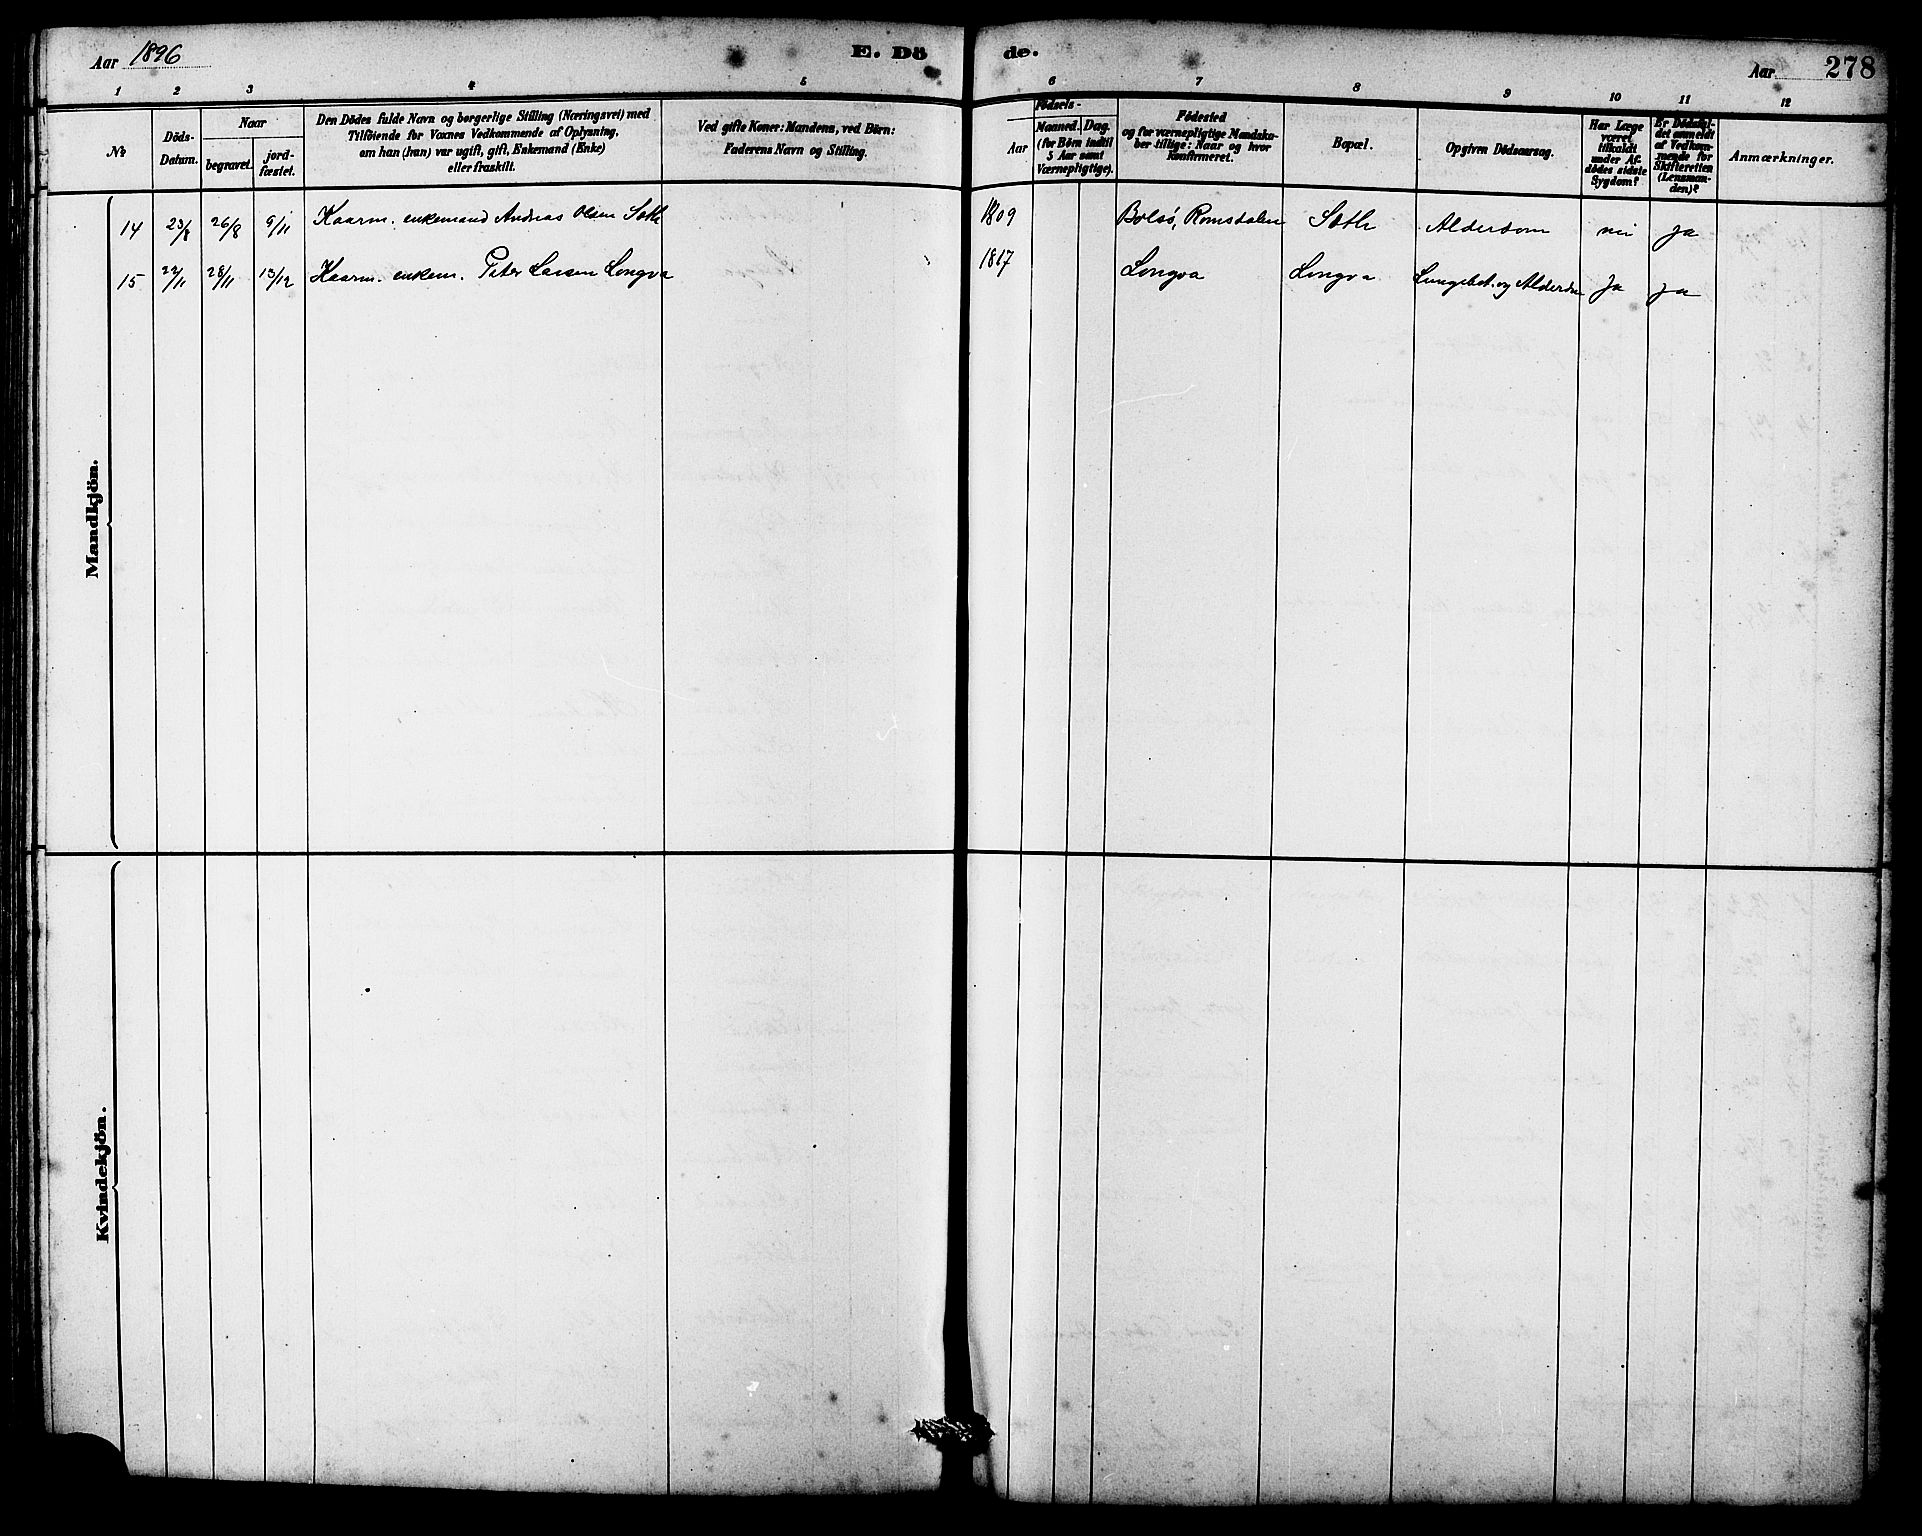 Aar 1896
E. Dö
de.
Aar 278
1 2 3 4 5 6 7 8 9 10 11 12
№
Döds-
Datum.
Naar
begravet.
jord-
fæstet.
Den Dödes fulde Navn og borgerlige Stilling (Næringsvei) med
Tilföiende for Voxnes Vedkommende af Oplysning,
om han (hun) var ugift, gift, Enkemand (Enke)
eller fraskilt.
Ved gifte Koner: Mandens, ved Börn:
Faderens Navn og Stilling.
Aar
Födsels-
Maaned. Dag.
(for Börn indtil
5 Aar samt
Værnepligtige).
Födested
og for værnepligtige Mandska-
ber tillige: Naar og hvor
konfirmeret.
Bopæl.
Opgiven Dödsaarsag.
Har Læge
været
tilkaldt
under Af-
dödes sidste
Sygdom?
Er Dödsfal-
det anmeldt
af Vedkom-
mende for
Skifteretten
(Lensman-
den)?
Anmærkninger.
Mandkjön.
14 23/8 26/8 9/11 Kaarm. enkemand Andreas Olsen Sæth 1809 Bolsö, Romsdalen Sæth Alderdom nei Ja
15 22/11 28/11 13/12 Kaarm. enkem. Peter Larsen Longva 1817 Longva Longva Lungebet. og Alderdom Ja Ja
Kvindekjön.